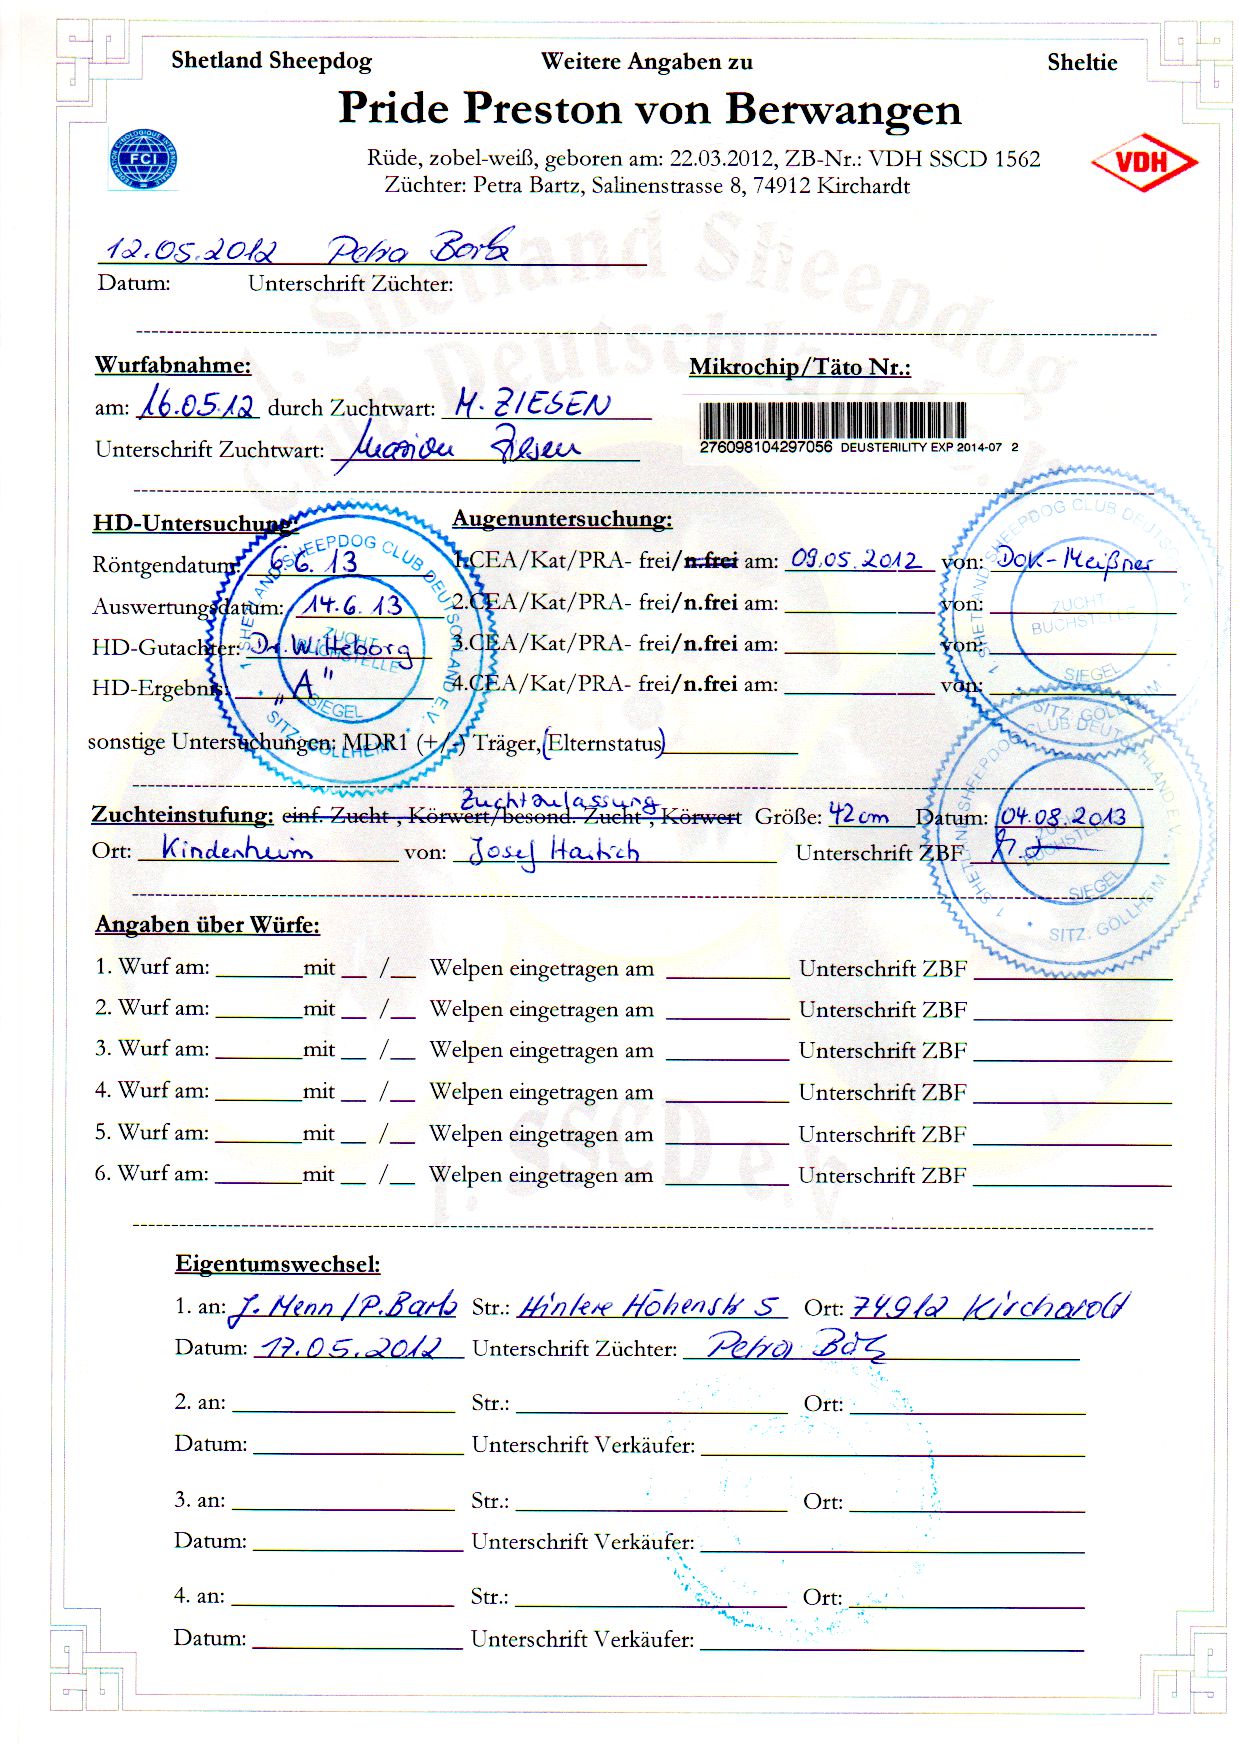 Shetland Sheepdog Weitere Angaben zu Sheltie
Pride Preston von Berwangen
FCI
Rüde, zobel-weiß, geboren am: 22.03.2012, ZB-Nr.: VDH SSCD 1562
VDH
Züchter: Petra Bartz, Salinenstrasse 8, 74912 Kirchardt
12.05.2012 Petra Bartz
Datum: Unterschrift Züchter:
Wurfabnahme: Mikrochip/Täto Nr.:
am: 16.05.12 durch Zuchtwart: M. ZIESEN
276098104297056 DEUSTERILITY EXP 2014-07 2
Unterschrift Zuchtwart: Marion Ziesen
HD-Untersuchung: Augenuntersuchung:
Röntgendatum: 6.6.13 1.CEA/Kat/PRA- frei/n.frei am: 09.05.2012 von: Dok-Meißner
Auswertungsdatum: 14.6.13 2.CEA/Kat/PRA- frei/n.frei am: von:
HD-Gutachter: Dr. Witteborg 3.CEA/Kat/PRA- frei/n.frei am: von:
HD-Ergebnis: "A" 4.CEA/Kat/PRA- frei/n.frei am: von:
1. SHETLAND SHEEPDOG CLUB DEUTSCHLAND E.V. SITZ: GÖLLHEIM
ZUCHT BUCHSTELLE SIEGEL
sonstige Untersuchungen: MDR1 (+/-) Träger,(Elternstatus)
Zuchtzulassung
Zuchteinstufung: einf. Zucht , Körwert/besond. Zucht , Körwert Größe: 42cm Datum: 04.08.2013
Ort: Kindenheim von: Josef Hartich Unterschrift ZBF
Angaben über Würfe:
1. Wurf am: mit / Welpen eingetragen am Unterschrift ZBF
2. Wurf am: mit / Welpen eingetragen am Unterschrift ZBF
3. Wurf am: mit / Welpen eingetragen am Unterschrift ZBF
4. Wurf am: mit / Welpen eingetragen am Unterschrift ZBF
5. Wurf am: mit / Welpen eingetragen am Unterschrift ZBF
6. Wurf am: mit / Welpen eingetragen am Unterschrift ZBF
Eigentumswechsel:
1. an: J. Menn / P. Bartz Str.: Hintere Höhenstr 5 Ort: 74912 Kirchardt
Datum: 17.05.2012 Unterschrift Züchter: Petra Bartz
2. an: Str.: Ort:
Datum: Unterschrift Verkäufer:
3. an: Str.: Ort:
Datum: Unterschrift Verkäufer:
4. an: Str.: Ort:
Datum: Unterschrift Verkäufer: